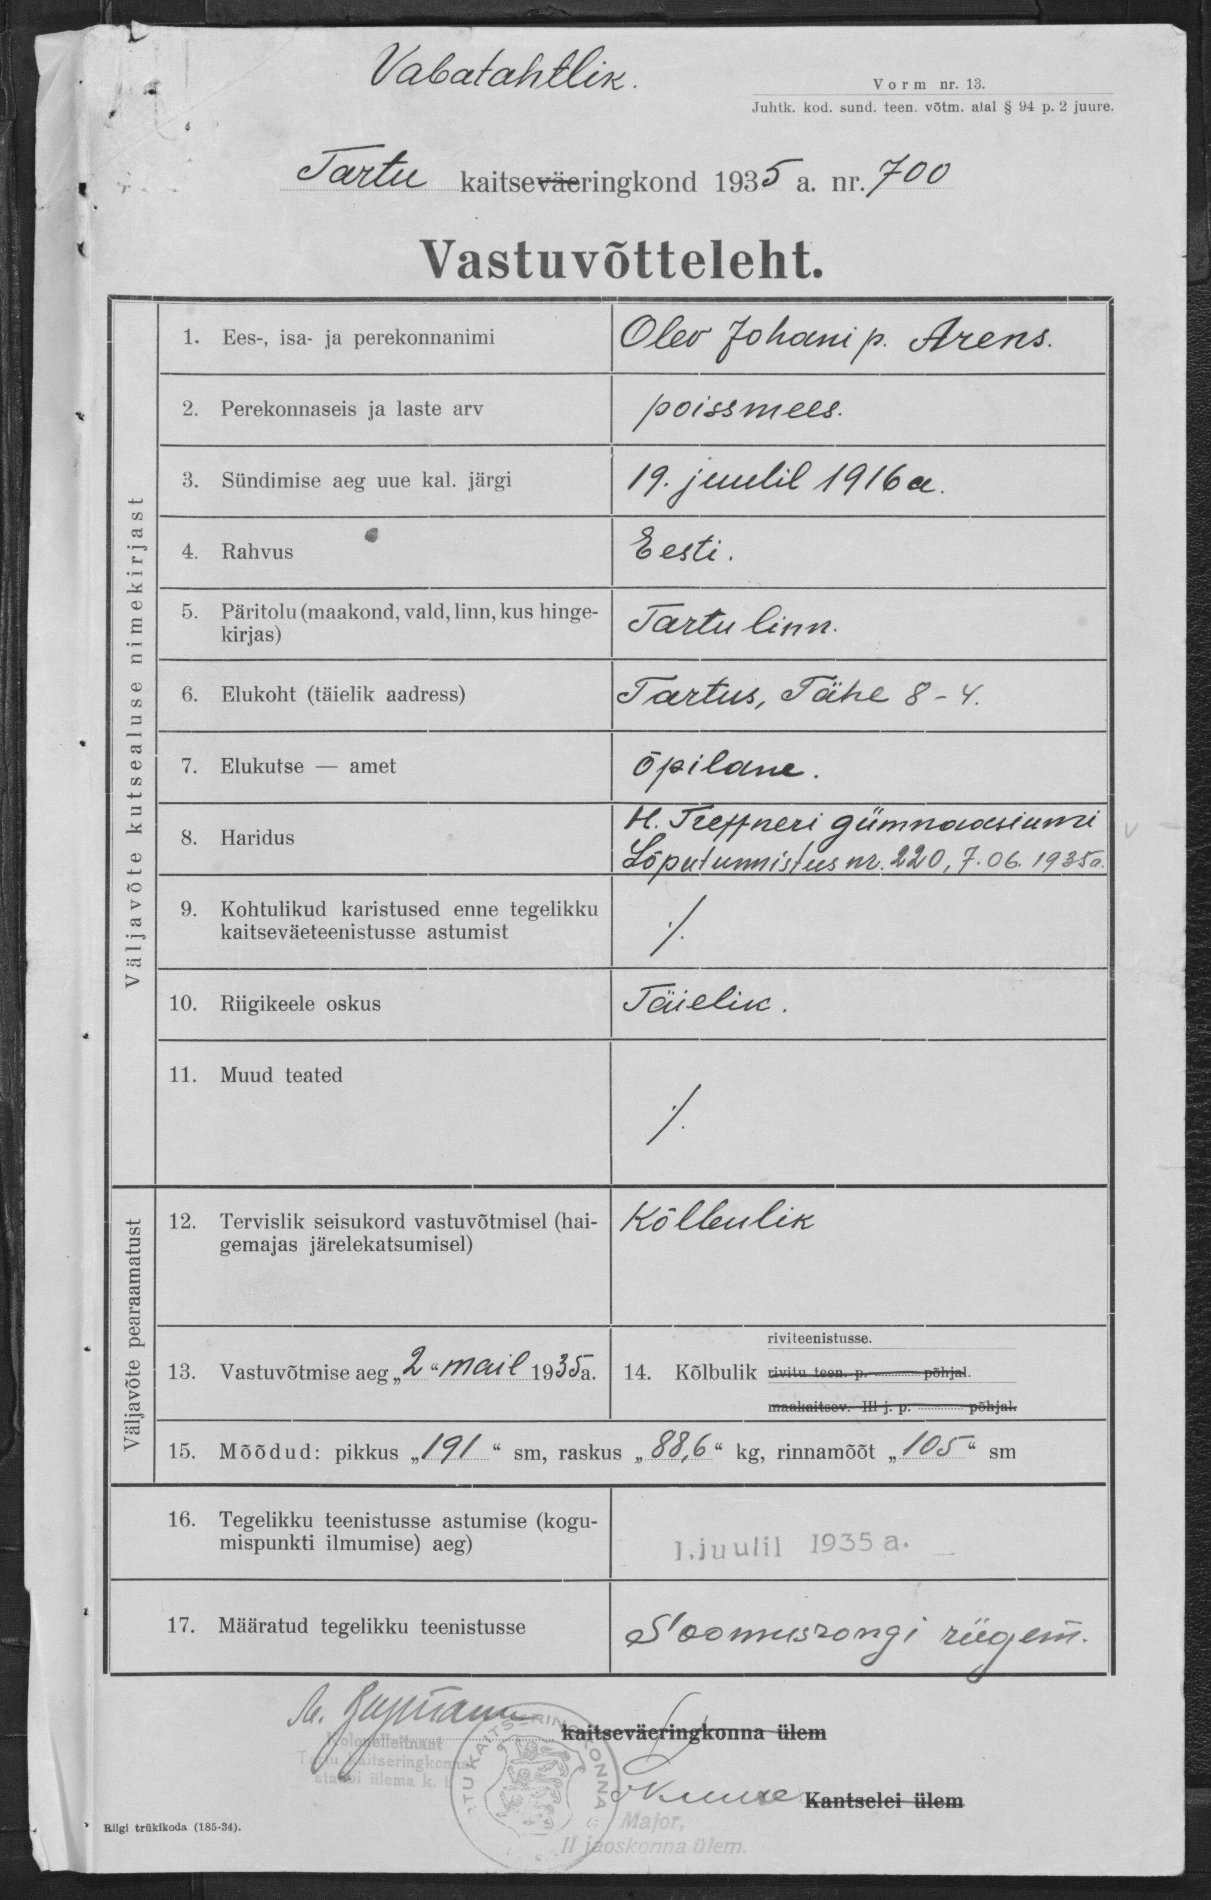 Vabatahtlik.
Vorm nr. 13.
Juhtk. kod. sund. teen. võtm. alal § 94 p. 2 juure.
Tartu kaitseväeringkond 1935 a. nr. 700
Vastuvõtteleht.
Väljavõte kutsealuse nimekirjast
1. Ees-, isa- ja perekonnanimi
Olev Johani p. Arens.
2. Perekonnaseis ja laste arv
poissmees.
3. Sündimise aeg uue kal. järgi
19. juulil 1916 a.
4. Rahvus
Eesti.
5. Päritolu (maakond, vald, linn, kus hinge-
kirjas)
Tartu linn.
6. Elukoht (täielik aadress)
Tartus, Tähe 8-4.
7. Elukutse — amet
õpilane.
8. Haridus
H. Treffneri gümnaasiumi
Lõputunnistus nr. 220, 7.06.1935a.
9. Kohtulikud karistused enne tegelikku
kaitseväeteenistusse astumist
./.
10. Riigikeele oskus
Täielik.
11. Muud teated
./.
Väljavõte pearaamatust
12. Tervislik seisukord vastuvõtmisel (hai-
gemajas järelekatsumisel)
Kõlbulik
13. Vastuvõtmise aeg „2“ mail 1935a.
14. Kõlbulik
riviteenistusse.
rivitu teen. p. põhjal.
maakaitsev. III j. p. põhjal.
15. Mõõdud: pikkus „191“ sm, raskus „88,6“ kg, rinnamõõt „105“ sm
16. Tegelikku teenistusse astumise (kogu-
mispunkti ilmumise) aeg)
1. juulil 1935 a.
17. Määratud tegelikku teenistusse
Soomusrongi rügem.
kaitseväeringkonna ülem
Kolonelleitnant
Tartu Kaitseringkonna
staabi ülema k. t.
Kantselei ülem
Major,
II jaoskonna ülem.
Riigi trükikoda (185-34).